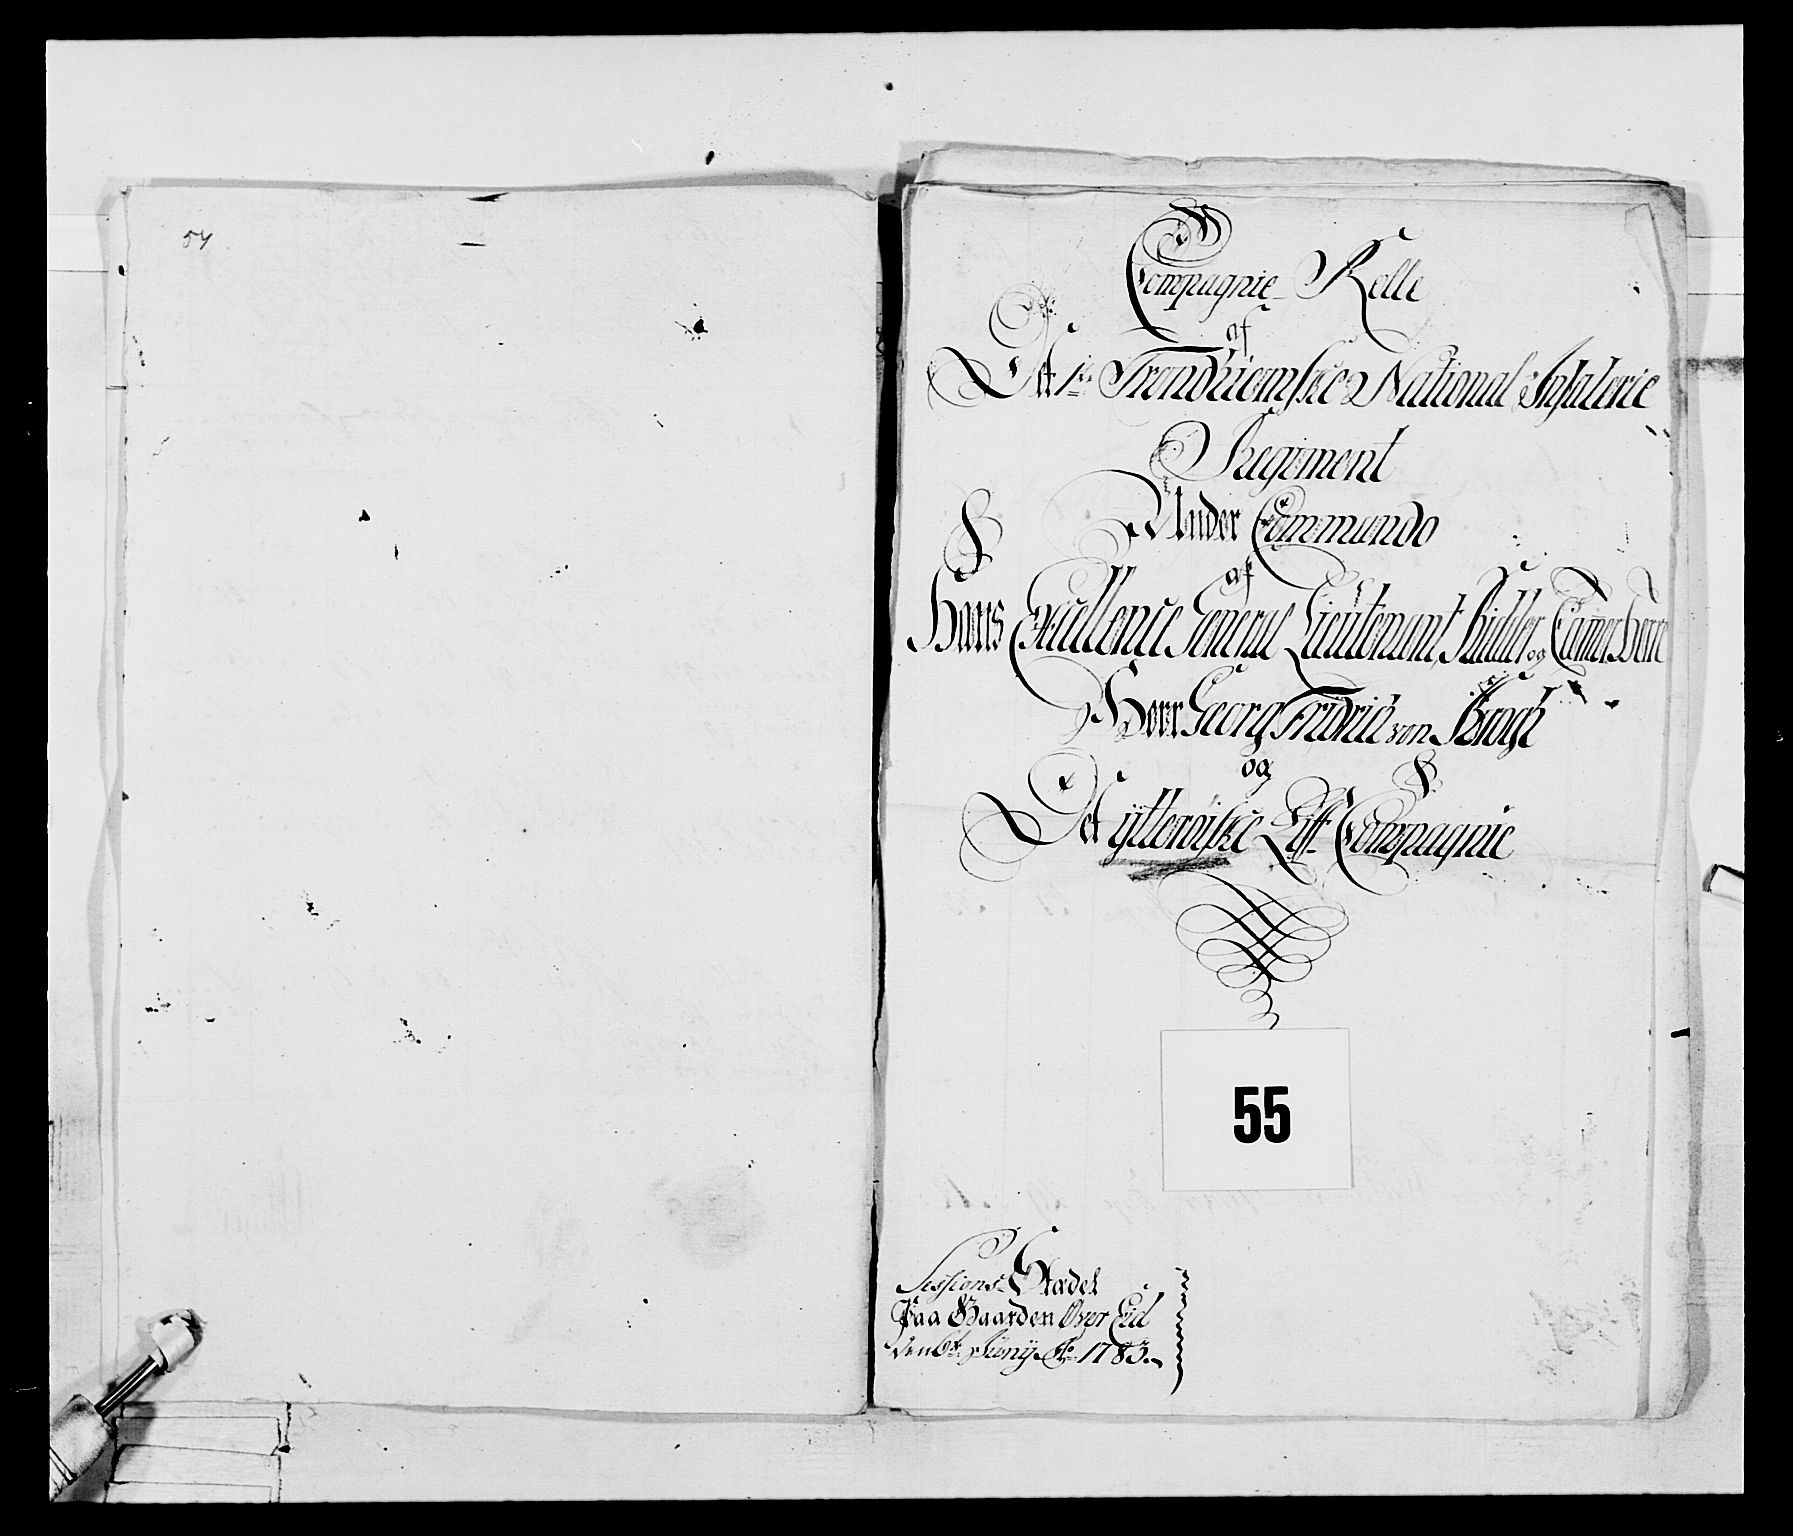 54
Compagnie Rolle
af
Det 1te Trondhiemske National Infanterie
Regiment
Under Commando
af
Hans Excellence General Lieutenant, Ridder og Camer Herre
Herr Georg Fridrich von Krogh
og
Det ÿtterøiske Liff Compagnie
55
Sessions Stædet
Paa Gaarden Over Eid
den 6te Junÿ Ao 1783.